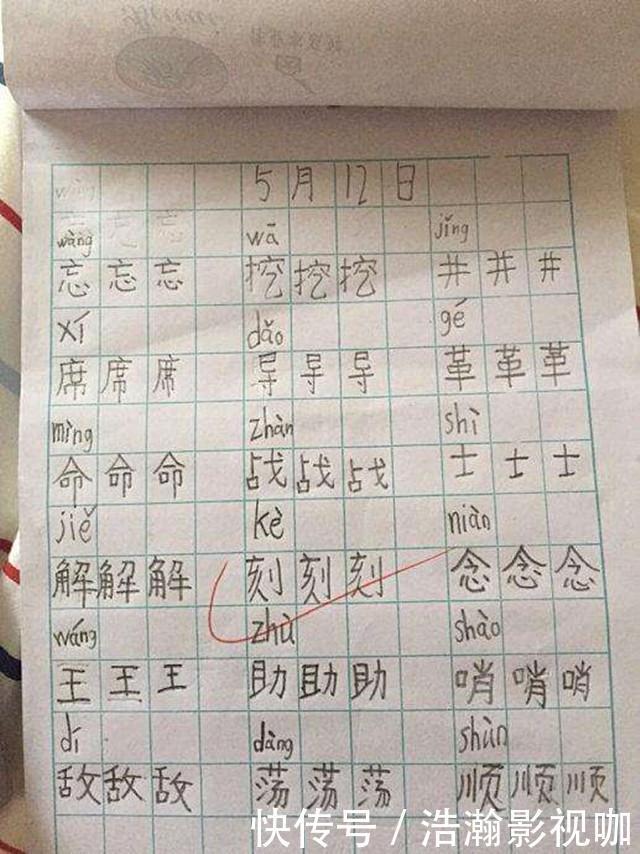 5月12日
wàng wā jǐng
忘忘忘 挖挖挖 井井井
xí dǎo gé
席席席 导导导 革革革
mìng zhàn shì
命命命 战战战 士士士
jiě kè niàn
解解解 刻刻刻 念念念
wáng zhù shào
王王王 助助助 哨哨哨
dí dàng shùn
敌敌敌 荡荡荡 顺顺顺
快传号/浩瀚影视咖